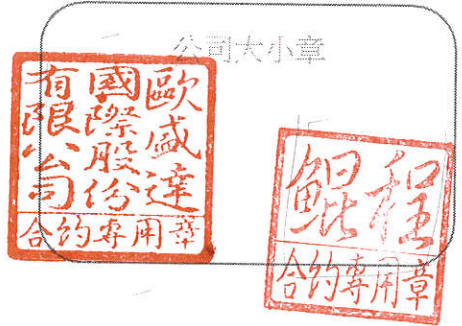 公司大小章
歐盛達
國際股份
有限公司
合約專用章
程鯤
合約專用章